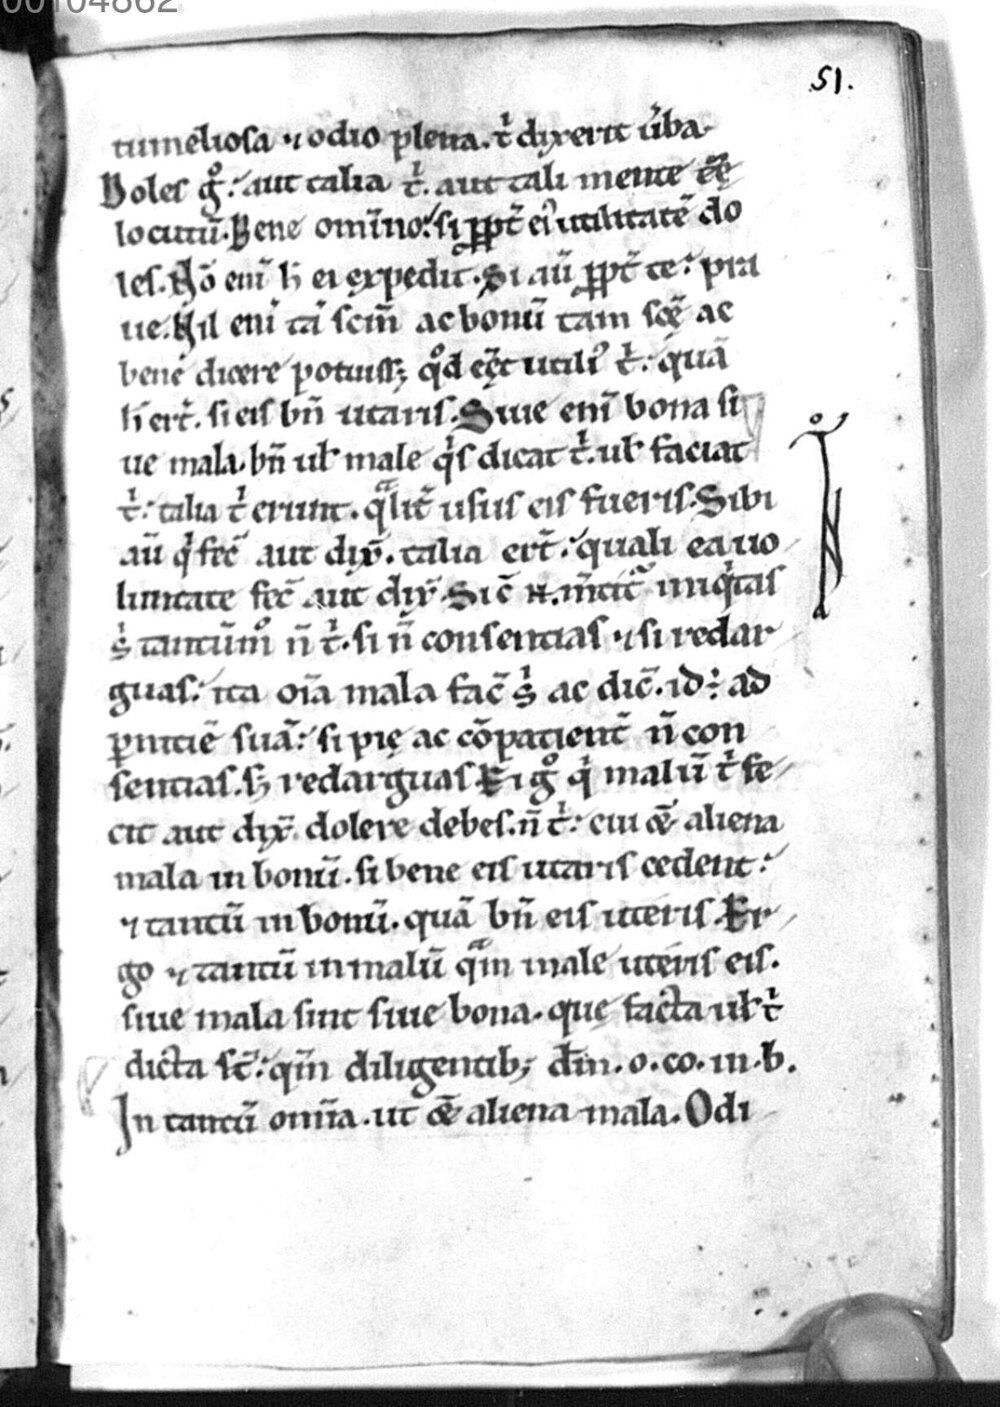 00104862
51.
tumeliosa ⁊ odio plena. t̍ dixerit ūba.
Doles gͦ: aut talia t̍. aut tali mente eę̄
locutū. Bene omīno: si ꝓpt̄ eiꝰ utilitatē do
les. Nō eni̅ h̄ ei expedit. Si aū ꝓpt̄ te: pra
ue. Nil eni̅ tā scm̄ ac bonū tam scę̄ ac
bene dicere potuiss; qͦd eēt utiliꝰ t̍: quā
h̄ erit̄. si eis bn̄ utaris. Siue eni̅ bona si
ue mala. bn̄ ul̄ male qi̍s dicat t̍. ul̄ faciat
t̍: talia t̍ erunt. qᵃlit̄ usus eis fueris. Sibi
aū qi̍ fec̄ aut dix̄. talia erit̄: quali ea uo
luntate fec̄ aut dix̄. Sic̄
s̍ tantūmͦ n̄ t̍. si n̄ consentias ⁊ si redar
guas: ita oīa mala fac̄ s̍ ac dic̄. id: ad
ꝑnitiē suā: si pię ac cōpatient̄ n̄ con
sentias. s; redarguas. Ei gͦ qi̍ malū t̍ fe
cit aut dix̄ dolere debes. n̄ t̍: cui & aliena
mala in bonū. si bene eis utaris cedent:
⁊ tantū in bonū. quā bn̄ eis uteris. Er
go ⁊ tantū in malū qᵃm male uteris eis.
siue mala sint siue bona. quę facta ul̄ t̍
dicta st̄: qm̄ diligentib; dm̄. o. co. in. b.
In tantū omīa. ut & aliena mala. Odi